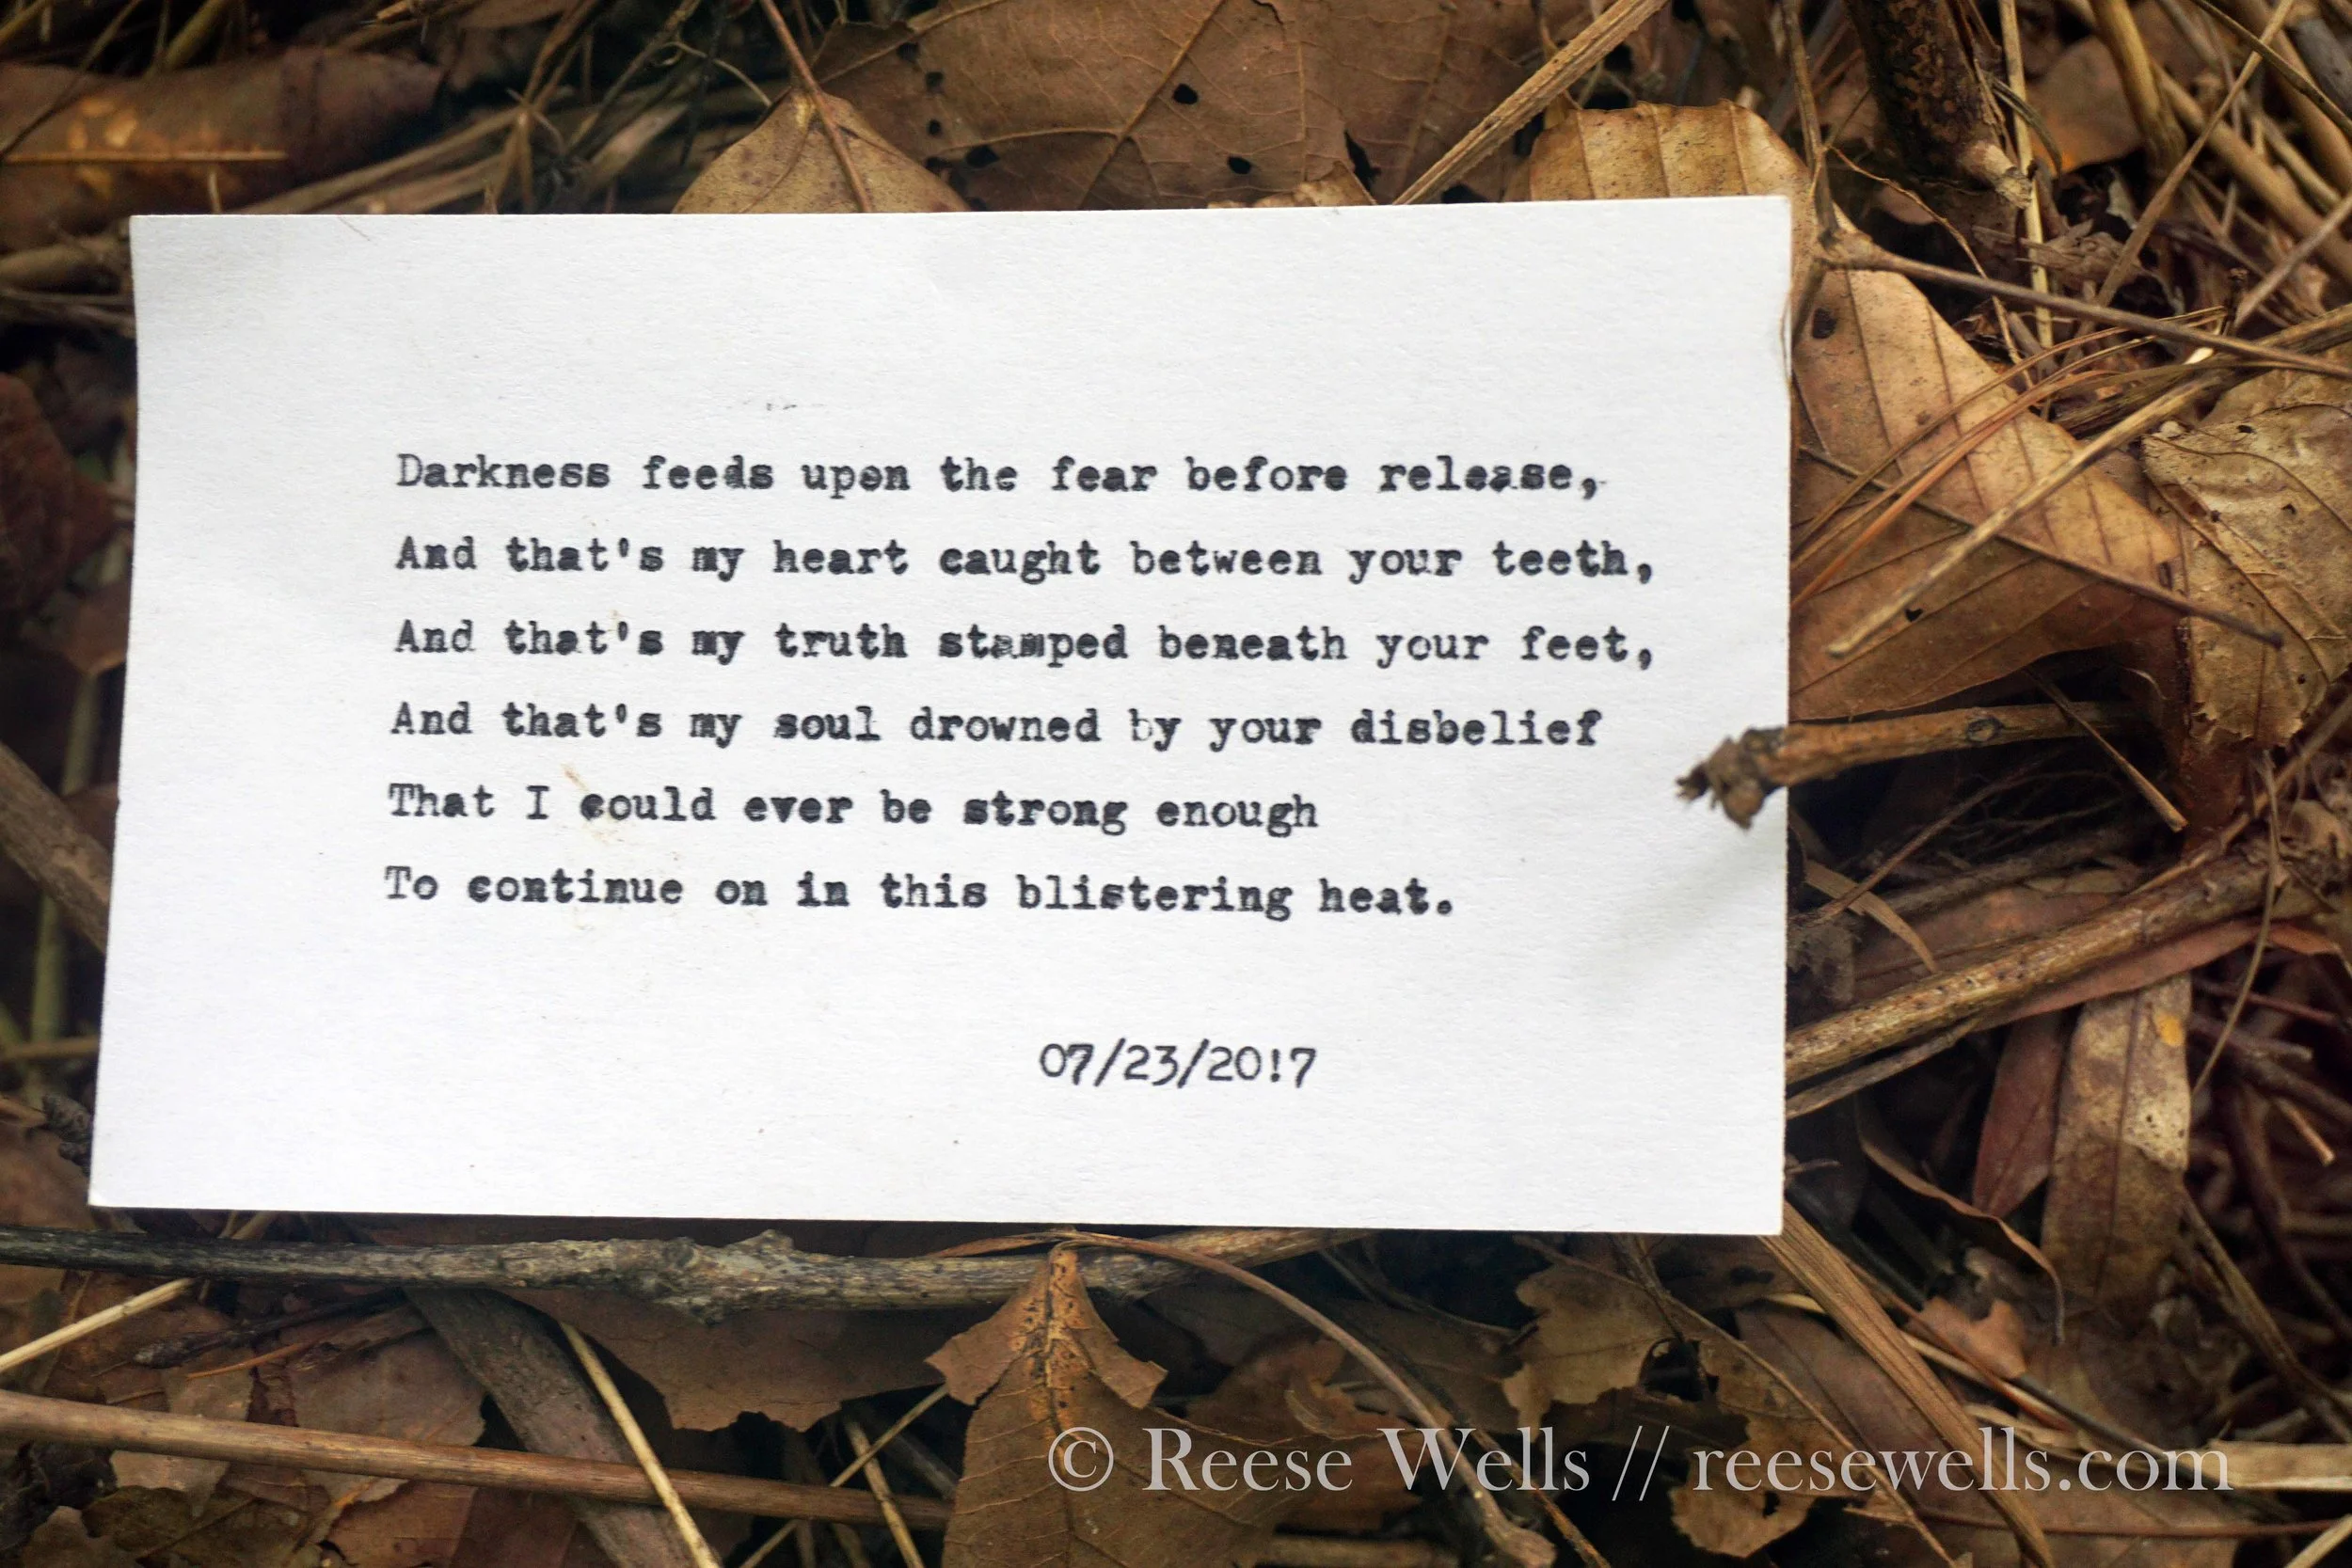 Darkness feeds upon the fear before release,
And that's my heart caught between your teeth,
And that's my truth stamped beneath your feet,
And that's my soul drowned by your disbelief
That I could ever be strong enough
To continue on in this blistering heat.
07/23/20!7
© Reese Wells // reesewells.com